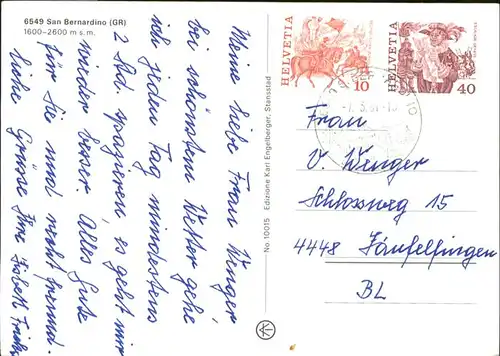 6549 San Bernardino (GR)
1600–2600 m s.m.
Meine liebe Frau Wenger
bei schönstem Wetter gehe
ich jeden Tag mindestens
2 Std. spazieren, es geht mir
wieder besser. Alles Gute
für Sie und recht freundl.
liebe Grüsse Ihre
No. 10015 Edizione Karl Engelberger, Stansstad
HELVETIA
10
HELVETIA
40
Frau
V. Wenger
Schlossweg 15
4448 Läufelfingen
BL